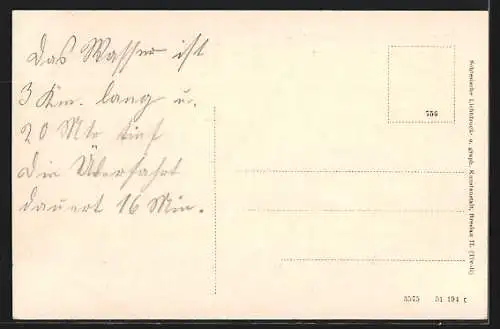 Das Wasser ist
3 Km. lang u.
20 Mtr tief
Die Überfahrt
dauert 16 Min.
756
Schlesische Lichtdruck- u. graph. Kunstanstalt, Breslau II.
3575 51 194 t